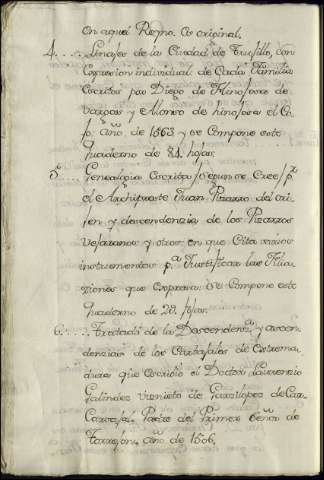 en aquel Reyno. Es original.
4.... Linajes de la Ciudad de Trujillo, con
Expresion individual de Cada Familia
Escritos por Diego de Hinojosa de
Vargas y Alonso de hinojosa el Cº
pº. año de 1563 y se Compone este
Quaderno de 84 hojas
5.... Genealogia Escrita segun se Cree pr
el Archipreste Juan Pizarro del orí-
jen y descendencia de los Pizarros
Vejaranos y otros en que Cita varios
instrumentos pª Justificar las Filia-
ziones que Expresa se Compone este
Quaderno de 28. fojas.
6.... Tratado de la Descendenª y ascen-
dencias de los Carbajales de Estrema-
dura que Escribió el Doctor Laurencio
Galindez vienieto de Garzilopez de Car
Carvajal Padre del Primer Señor de
Torrejon, año de 1506.